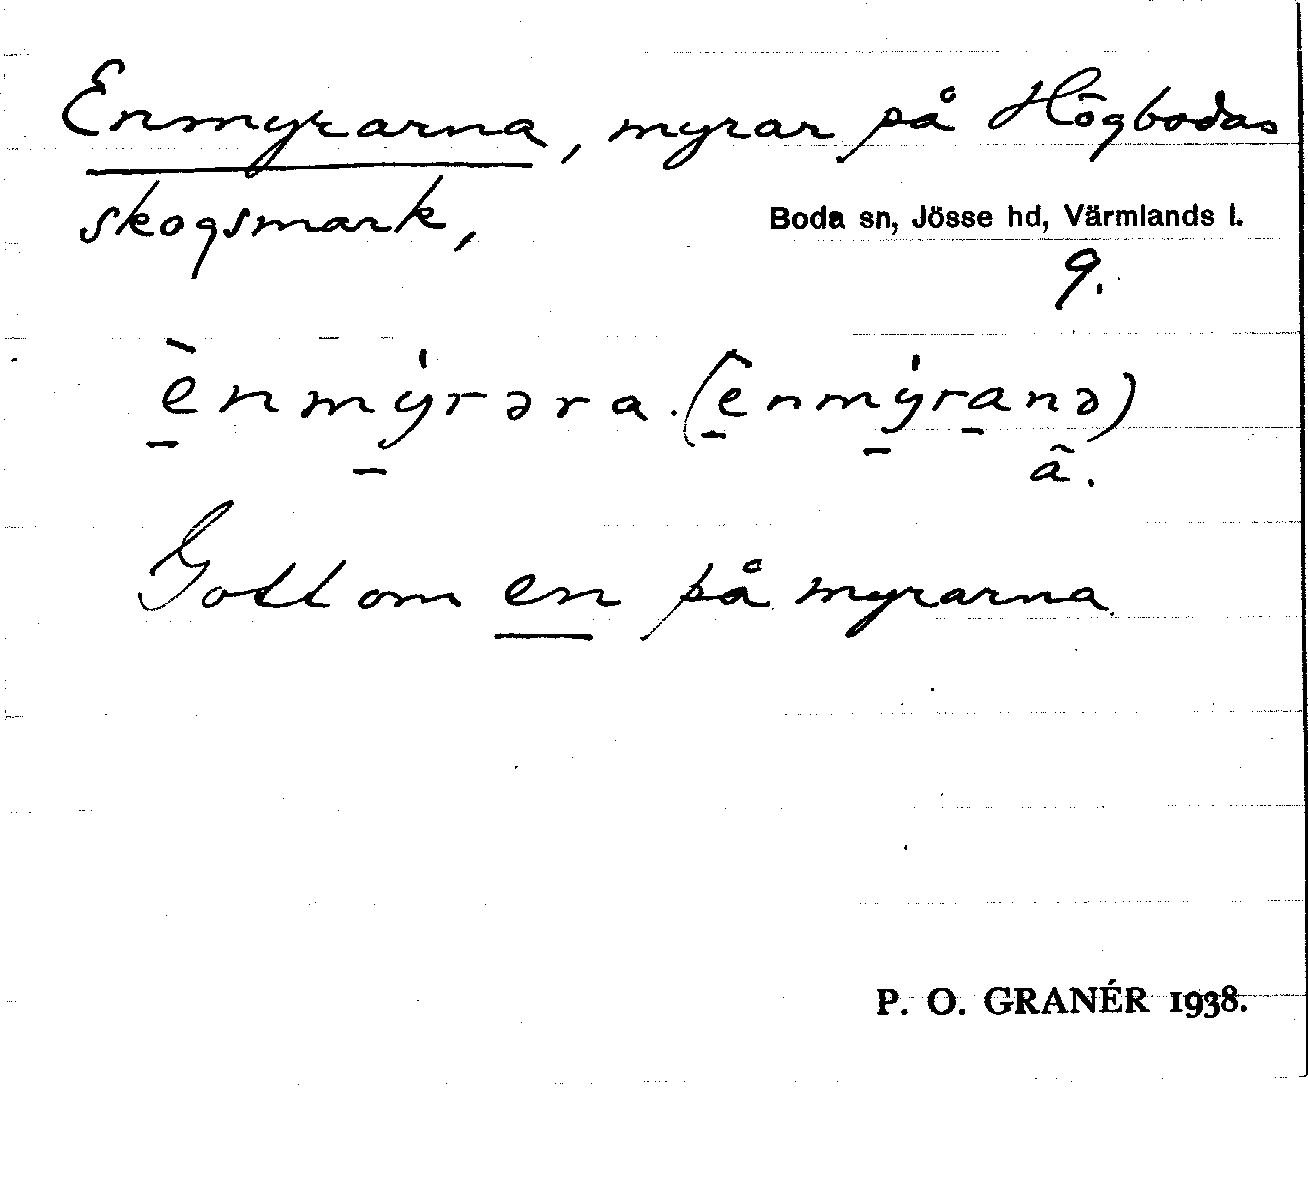 Enmyrarna, myrar på Högbodas
skogsmark,
Boda sn, Jösse hd, Värmlands l.
9.
ènmýrəra. (ènmýranə)
ã.
Gott om en på myrarna.
P. O. GRANÉR 1938.